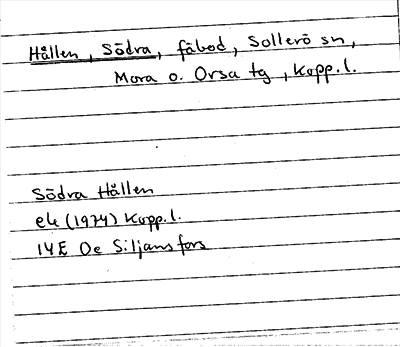 Hållen, Södra, fäbod, Sollerö sn,
Mora o. Orsa tg, Kopp.l.
Södra Hållen
ek (1974) Kopp.l.
14E 0e Siljansfors